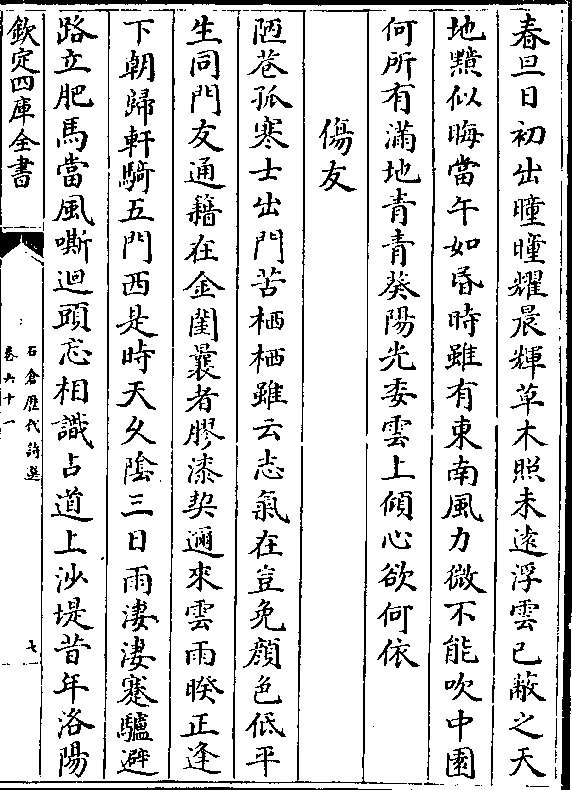 春旦日初出曈曨耀晨輝草木照未遠浮雲已蔽之天
地黯似晦當午如昏時雖有東南風力微不能吹中園
何所有滿地青青葵陽光委雲上傾心欲何依
傷友
陋巷孤寒士出門苦栖栖雖云志氣在豈免顔色低平
生同門友通籍在金閨曩者膠漆契邇來雲雨暌正逢
下朝歸軒騎五門西是時天久陰三日雨淒淒蹇驢避
路立肥馬當風嘶迴頭忘相識占道上沙堤昔年洛陽
欽定四庫全書
石倉歴代詩選
卷六十一
七